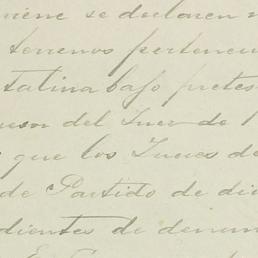 viene se declaren
terrenos pertenecie
talina bajo pretes
del Juez de 1
que los Jueces de
de Partido de di
dientes de denun